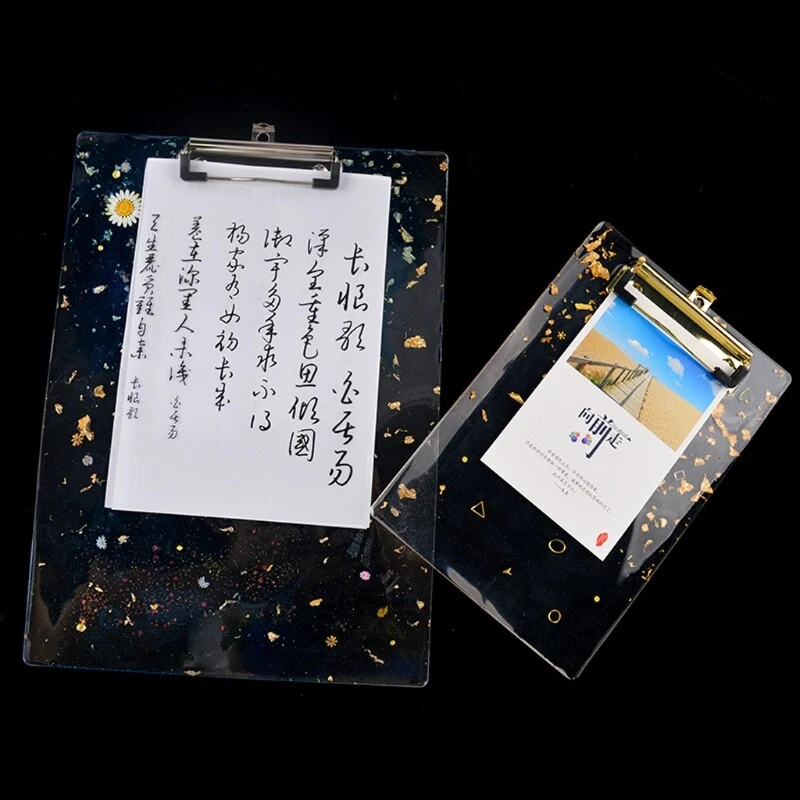 长恨歌 白居易
漢皇重色思傾國
御宇多年求不得
杨家有女初长成
養在深闺人未識 白居易
天生麗質難自棄 长恨歌
向前走